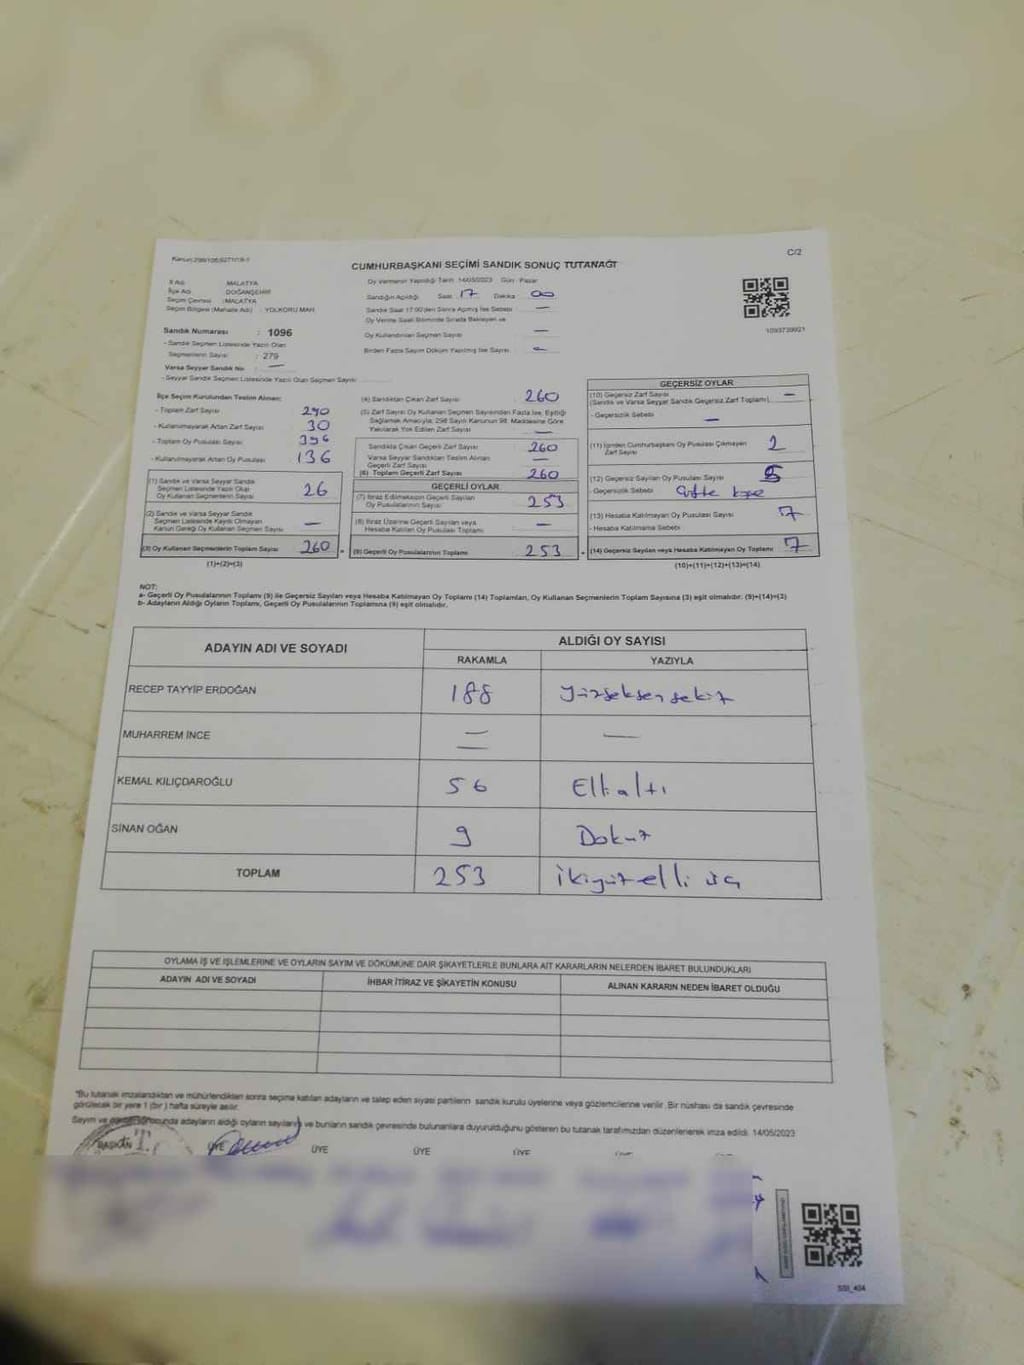 C/2
CUMHURBAŞKANI SEÇİMİ SANDIK SONUÇ TUTANAĞI
İl Adı : MALATYA
İlçe Adı : DOĞANŞEHİR
Seçim Çevresi : MALATYA
Seçim Bölgesi (Mahalle Adı) : YOLKORU MAH
Sandık Numarası : 1096
- Sandık Seçmen Listesinde Yazılı Olan
Seçmenlerin Sayısı : 279
Varsa Seyyar Sandık No : —
- Seyyar Sandık Seçmen Listesinde Yazılı Olan Seçmen Sayısı
Oy Vermenin Yapıldığı Tarih 14/05/2023 Gün: Pazar
Sandığın Açıldığı Saat 17 Dakika 00
Sandık Saat 17:00'den Sonra Açılmış İse Sebebi —
Oy Verme Saati Bitiminde Sırada Bekleyen ve
Oy Kullandırılan Seçmen Sayısı —
Birden Fazla Sayım Döküm Yapılmış İse Sayısı —
1093739921
İlçe Seçim Kurulundan Teslim Alınan:
- Toplam Zarf Sayısı 290
- Kullanılmayarak Artan Zarf Sayısı 30
- Toplam Oy Pusulası Sayısı 396
- Kullanılmayarak Artan Oy Pusulası 136
(1) Sandık ve Varsa Seyyar Sandık
Seçmen Listesinde Yazılı Olup
Oy Kullanan Seçmenlerin Sayısı 26
(2) Sandık ve Varsa Seyyar Sandık
Seçmen Listesinde Kayıtlı Olmayan
Kanun Gereği Oy Kullanan Seçmen Sayısı —
(3) Oy Kullanan Seçmenlerin Toplam Sayısı 260 =
(1)+(2)=(3)
(4) Sandıktan Çıkan Zarf Sayısı 260
(5) Zarf Sayısı Oy Kullanan Seçmen Sayısından Fazla İse, Eşitliği
Sağlamak Amacıyla; 298 Sayılı Kanunun 98. Maddesine Göre
Yakılarak Yok Edilen Zarf Sayısı —
Sandıkta Çıkan Geçerli Zarf Sayısı 260
Varsa Seyyar Sandıktan Teslim Alınan
Geçerli Zarf Sayısı —
(6) Toplam Geçerli Zarf Sayısı 260
GEÇERLİ OYLAR
(7) İtiraz Edilmeksizin Geçerli Sayılan
Oy Pusulası Sayısı 253
(8) İtiraz Üzerine Geçerli Sayılan veya
Hesaba Katılan Oy Pusulası Toplamı —
(9) Geçerli Oy Pusulalarının Toplamı 253 +
GEÇERSİZ OYLAR
(10) Geçersiz Zarf Sayısı —
(Sandık ve Varsa Seyyar Sandık Geçersiz Zarf Toplamı)
- Geçersizlik Sebebi —
(11) İçinden Cumhurbaşkanı Oy Pusulası Çıkmayan
Zarf Sayısı 2
(12) Geçersiz Sayılan Oy Pusulası Sayısı 5
- Geçersizlik Sebebi
(13) Hesaba Katılmayan Oy Pusulası Sayısı 7
- Hesaba Katılmama Sebebi
(14) Geçersiz Sayılan veya Hesaba Katılmayan Oy Toplamı 7
(10)+(11)+(12)+(13)=(14)
NOT:
a- Geçerli Oy Pusulalarının Toplamı (9) ile Geçersiz Sayılan veya Hesaba Katılmayan Oy Toplamı (14) Toplamları, Oy Kullanan Seçmenlerin Toplam Sayısına (3) eşit olmalıdır. (9)+(14)=(3)
b- Adayların Aldığı Oyların Toplamı, Geçerli Oy Pusulalarının Toplamına (9) eşit olmalıdır.
ADAYIN ADI VE SOYADI ALDIĞI OY SAYISI
RAKAMLA YAZIYLA
RECEP TAYYİP ERDOĞAN 188 Yüzseksensekiz
MUHARREM İNCE — —
KEMAL KILIÇDAROĞLU 56 Ellialtı
SİNAN OĞAN 9 Dokuz
TOPLAM 253 İkiyüzelli üç
OYLAMA İŞ VE İŞLEMLERİNE VE OYLARIN SAYIM VE DÖKÜMÜNE DAİR ŞİKAYETLERLE BUNLARA AİT KARARLARIN NELERDEN İBARET BULUNDUKLARI
ADAYIN ADI VE SOYADI İHBAR İTİRAZ VE ŞİKAYETİN KONUSU ALINAN KARARIN NEDEN İBARET OLDUĞU
*Bu tutanak imzalandıktan ve mühürlendikten sonra seçime katılan adayların ve talep eden siyasi partilerin sandık kurulu üyelerine veya gözlemcilerine verilir. Bir nüshası da sandık çevresinde
görülecek bir yere 1 (bir) hafta süreyle asılır.
Sayım ve sonucunda adayların aldığı oyların sayılarını ve bunların sandık çevresinde bulunanlara duyurulduğunu gösteren bu tutanak tarafımızdan düzenlenerek imza edildi. 14/05/2023
BAŞKAN ÜYE ÜYE ÜYE ÜYE
SSI_404